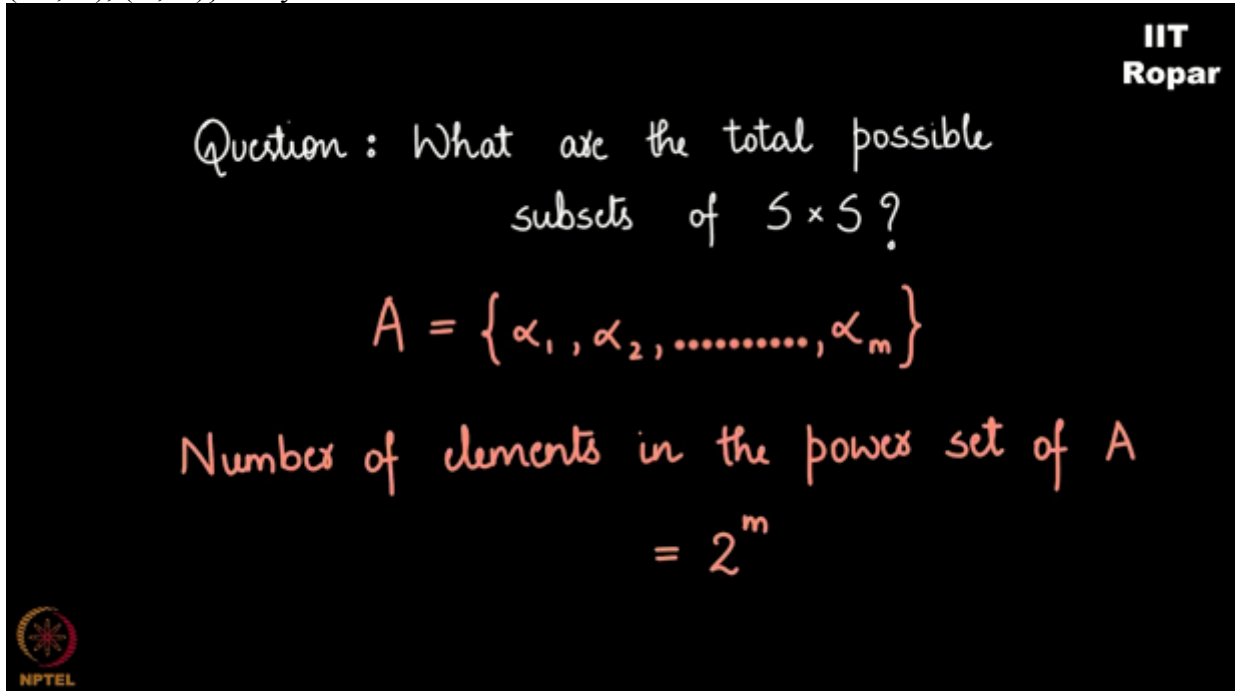 IIT
Ropar
Question : What are the total possible
subsets of S × S ?
A = { α₁ , α₂ , .......... , αₘ }
Number of elements in the power set of A
= 2ᵐ
NPTEL